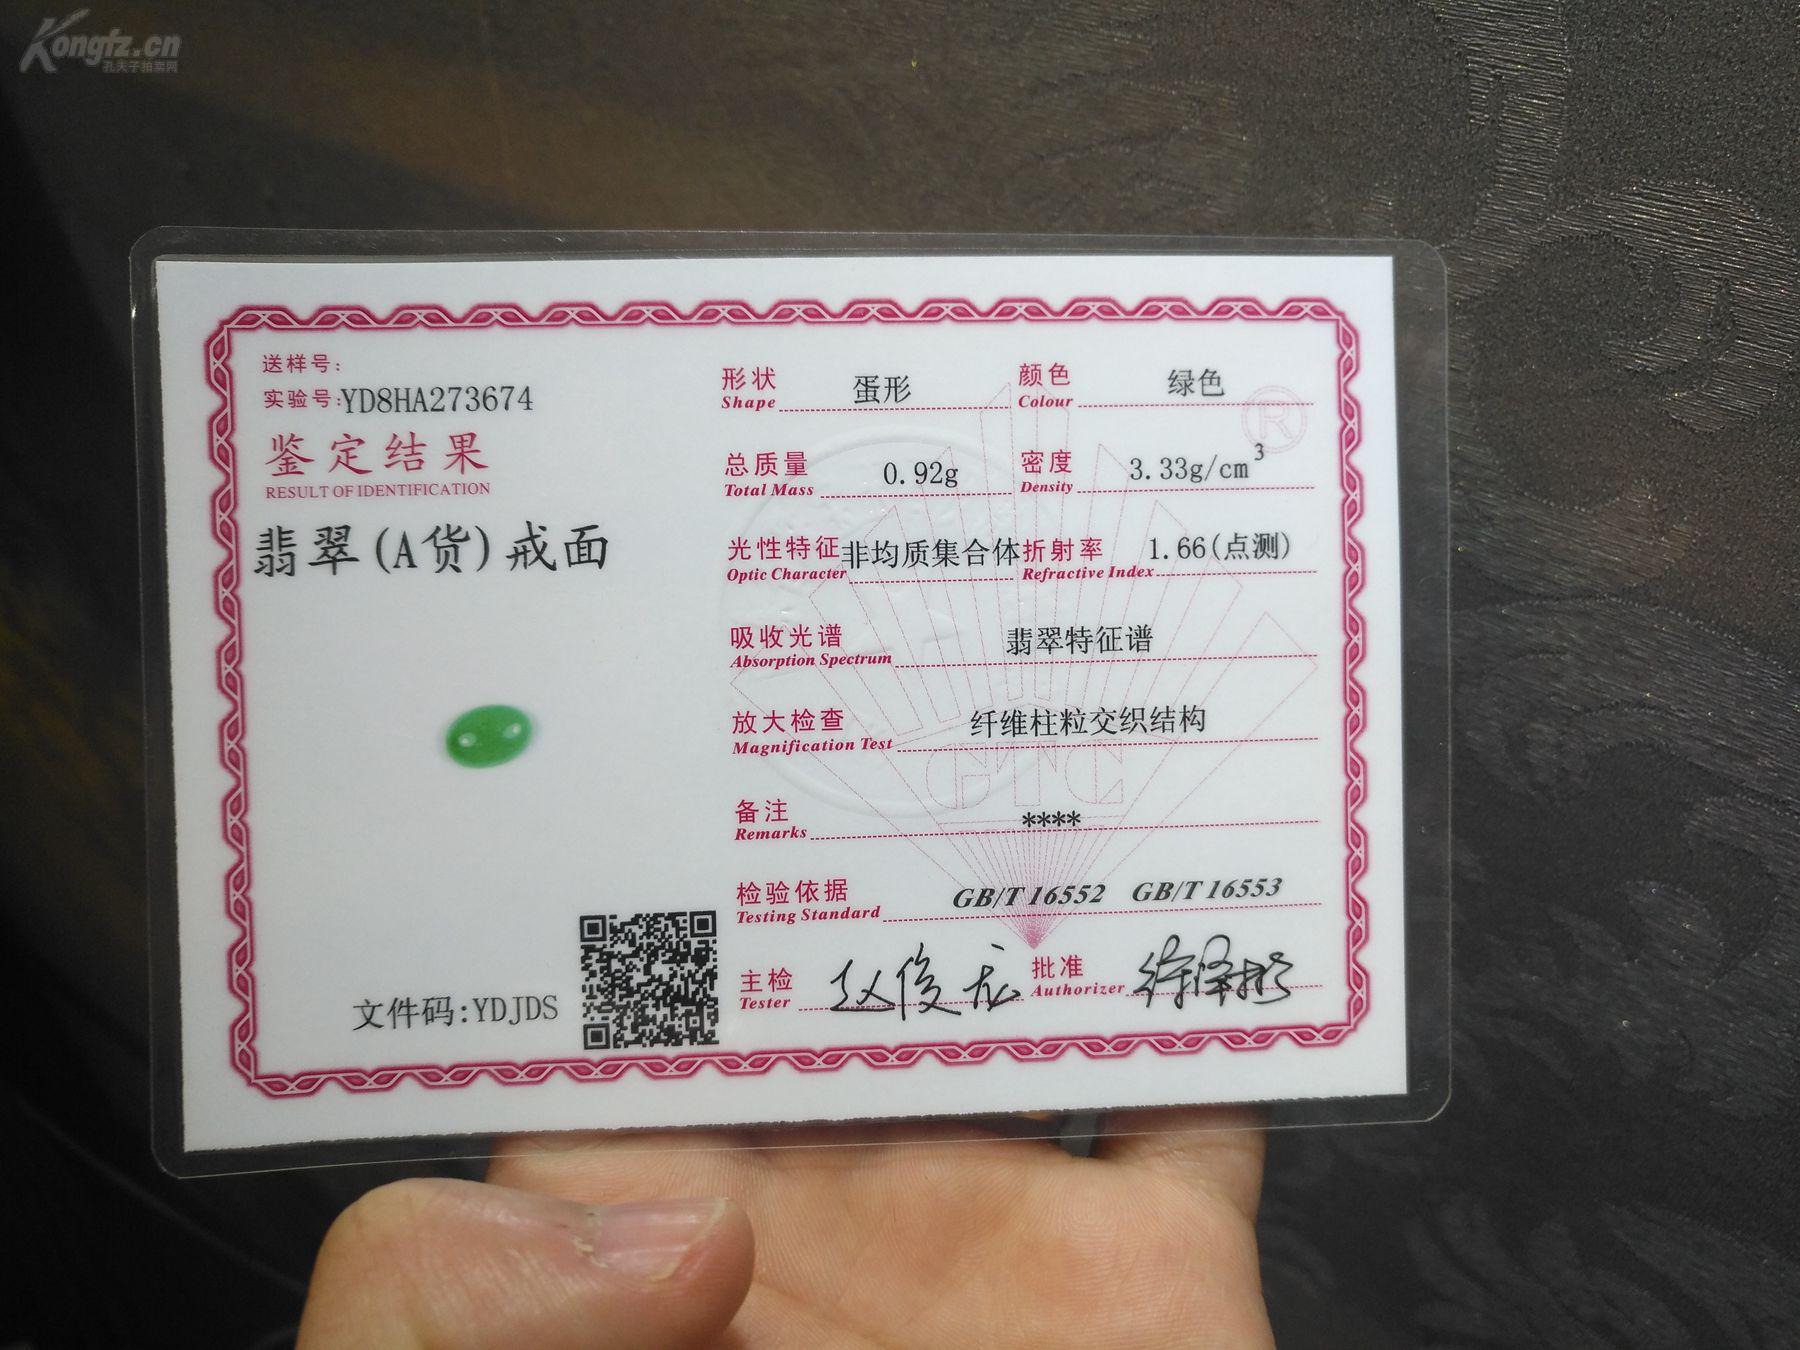 Kongfz.cn
孔夫子拍卖网
送样号:
实验号:YD8HA273674
鉴定结果
RESULT OF IDENTIFICATION
翡翠(A货)戒面
文件码:YDJDS
形状 蛋形 颜色 绿色
Shape Colour
总质量 0.92g 密度 3.33g/cm³
Total Mass Density
光性特征 非均质集合体 折射率 1.66(点测)
Optic Character Refractive Index
吸收光谱 翡翠特征谱
Absorption Spectrum
放大检查 纤维柱粒交织结构
Magnification Test
GTC
®
备注 ****
Remarks
检验依据 GB/T 16552 GB/T 16553
Testing Standard
主检 赵俊龙 批准
Tester Authorizer